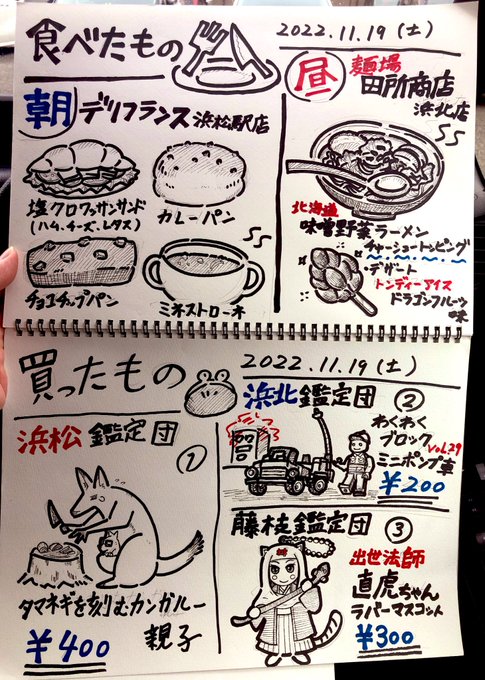 食べたもの
2022.11.19 (土)
朝 デリフランス 浜松駅店
塩クロワッサンサンド
(ハム、チーズ、レタス)
カレーパン
チョコチップパン
ミネストローネ
昼 麺場
田所商店
浜北店
北海道
味噌野菜ラーメン
チャーシュートッピング
・デザート
トンディーアイス
ドラゴンフルーツ
味
買ったもの
2022.11.19 (土)
浜松 鑑定団
①
タマネギを刻むカンガルー
親子
¥400
浜北 鑑定団 ②
わくわく
ブロック Vol.29
ミニポンプ車
¥200
藤枝鑑定団 ③
出世法師
直虎ちゃん
ラバーマスコット
¥300